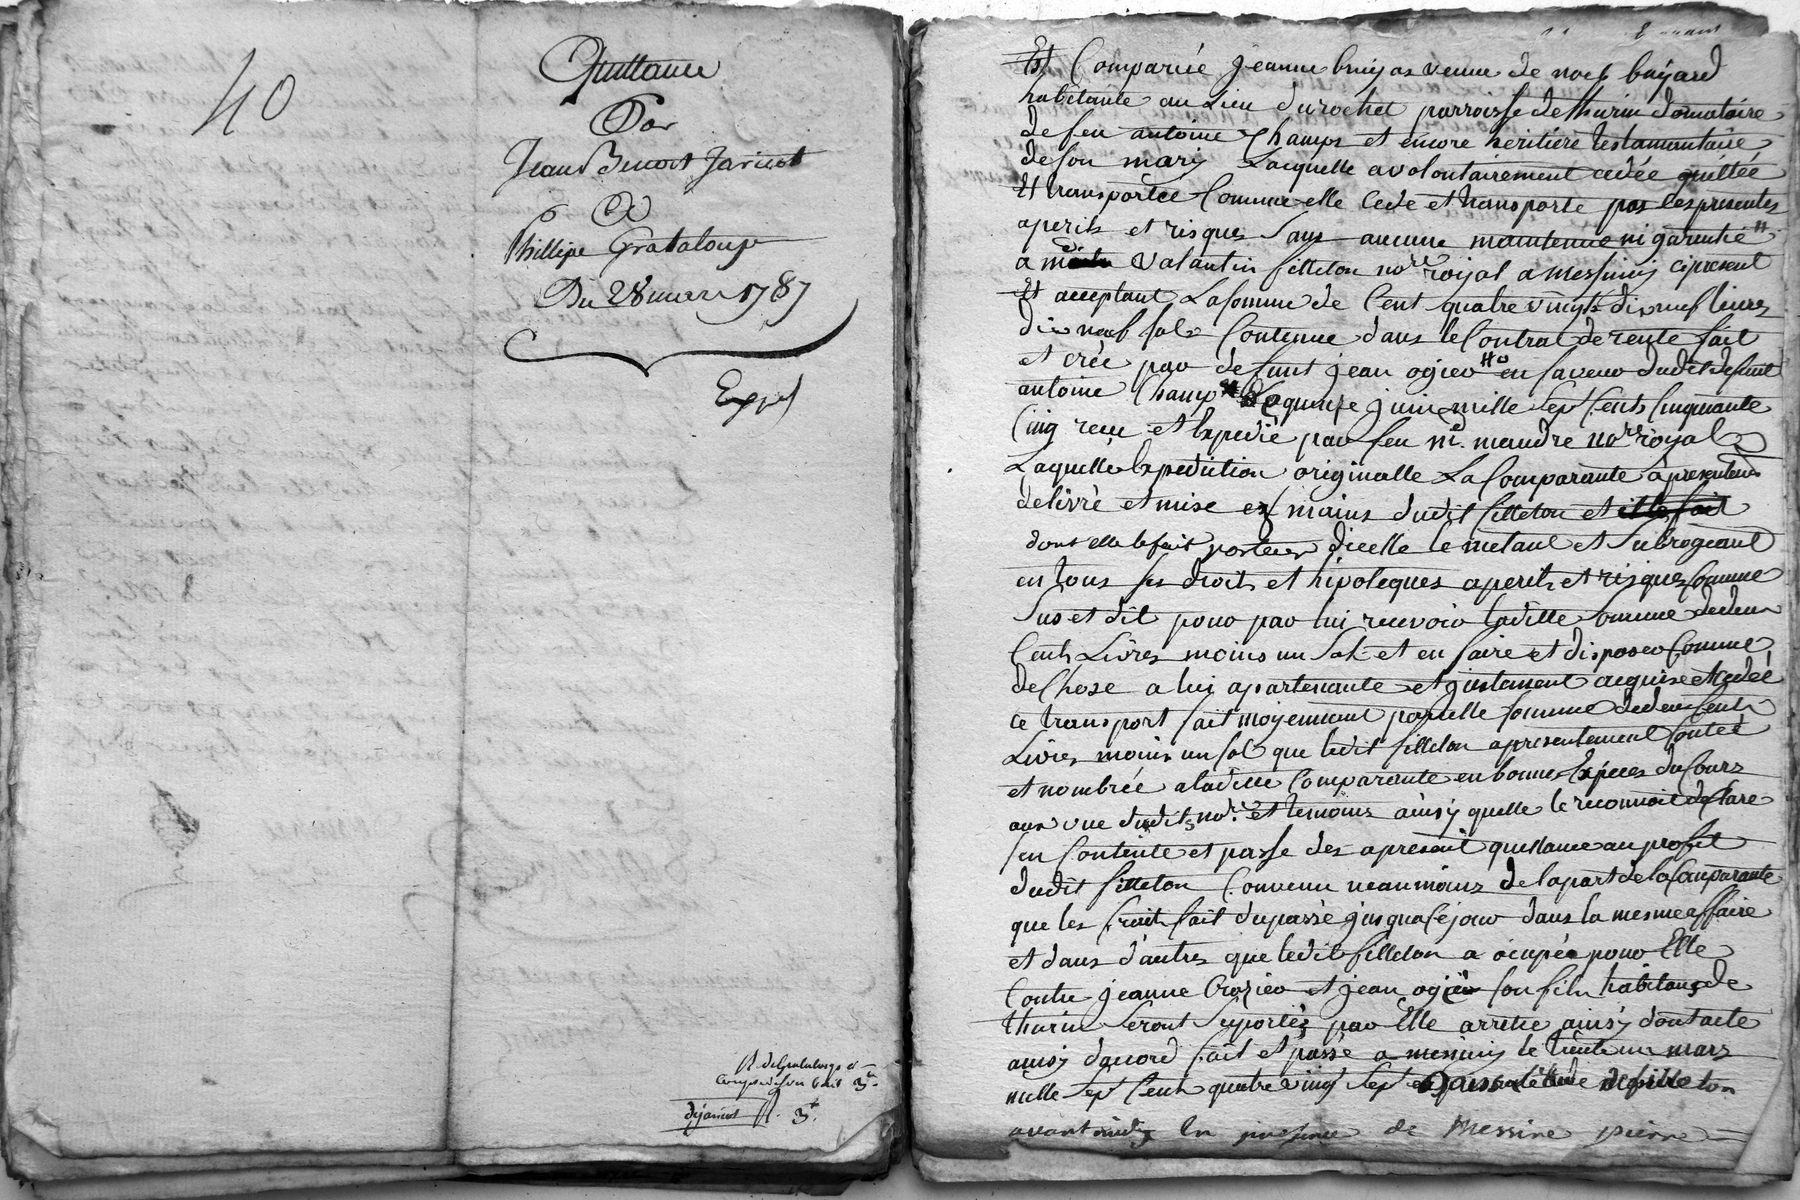 40
Quittance
Par
Jean Benoit Jaricot
A
Phillipe Grataloup
Du 28 mars 1787
Expé
R. de Grataloup
3
dejaricot 3
Est Comparüe jeanne bruyas veuve de noel bayard
habitante au Lieu du rochet parroisse de thurin donnataire
de feu antoine Champs et encore héritière testamantaire
de son mary Laquelle a volontairement cedée quittée
Et transportée Comme elle Cede et transporte par les presentes
a perils et risques Sans aucune maintenue ni garentie
a me valantin filleton nore royal a messimy ci present
Et acceptant La somme de Cent quatre vingts dix neuf livres
dix neuf sols Contenue dans le Contrat de rente fait
et crée par defunt jean ogier en faveur dudit defunt
antoine Champ Le quinze juin mille Sept Cents Cinquante
Cinq recu et Expedié par feu me mandre nore royal
Laquelle Expedition originalle La Comparante a presentement
delivré et mise es mains dudit filleton et
dont elle le fait porteur dicelle le metant et Subrogeant
en tous ses droits et hipoteques a perils et risques Comme
Sus et dit pour par lui recevoir laditte Somme de deux
Cents Livres moins un Sol et en faire et disposer Comme
de Chose a lui apartenante et justement acquise et cedée
ce transport fait moyennant pareille somme de deux Cents
Livres moins un sol que ledit filleton a presentement Contée
et nombrée a laditte Comparante en bonnes Espèces du Cours
aux vue dudits nore et temoins ainsy quelle le reconnoit declare
sen Contente et passe des a present quittance au profit
dudit filleton Convenu neanmoins de la part de la Comparante
que les frait fait du passé jusqua ce jour dans la mesme affaire
et dans d'autres que ledit filleton a ocupée pour Elle
Contre jeanne Crozier et jean ogier son fils habitans de
thurin Seront Suportés par Elle arretté ainsy dont acte
ainsi d'acord fait et passé a messimy le trente un mars
mille Sept Cents quatre vingt Sept
avant midy En presence de Messire pierre